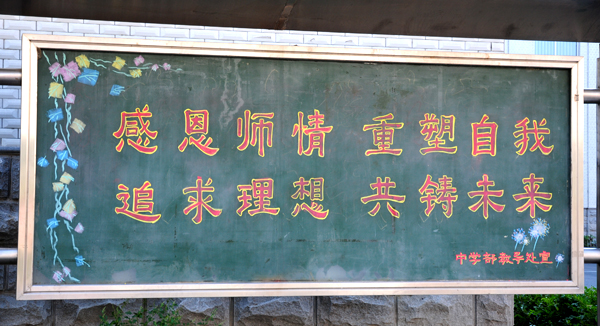 感恩师情 重塑自我
追求理想 共铸未来
中学部教导处宣